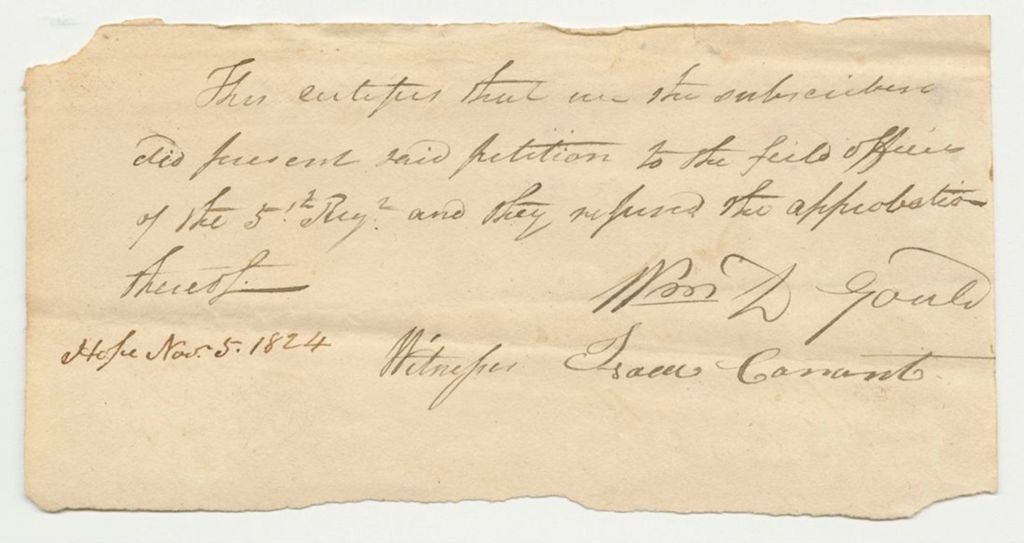 This certifies that we the subscribers
did present said petition to the feild officers
of the 5th Regt and they refused the approbation
thereof.
Wm D Gould
Hope Nov. 5. 1824 Witnesses Isaac Conant